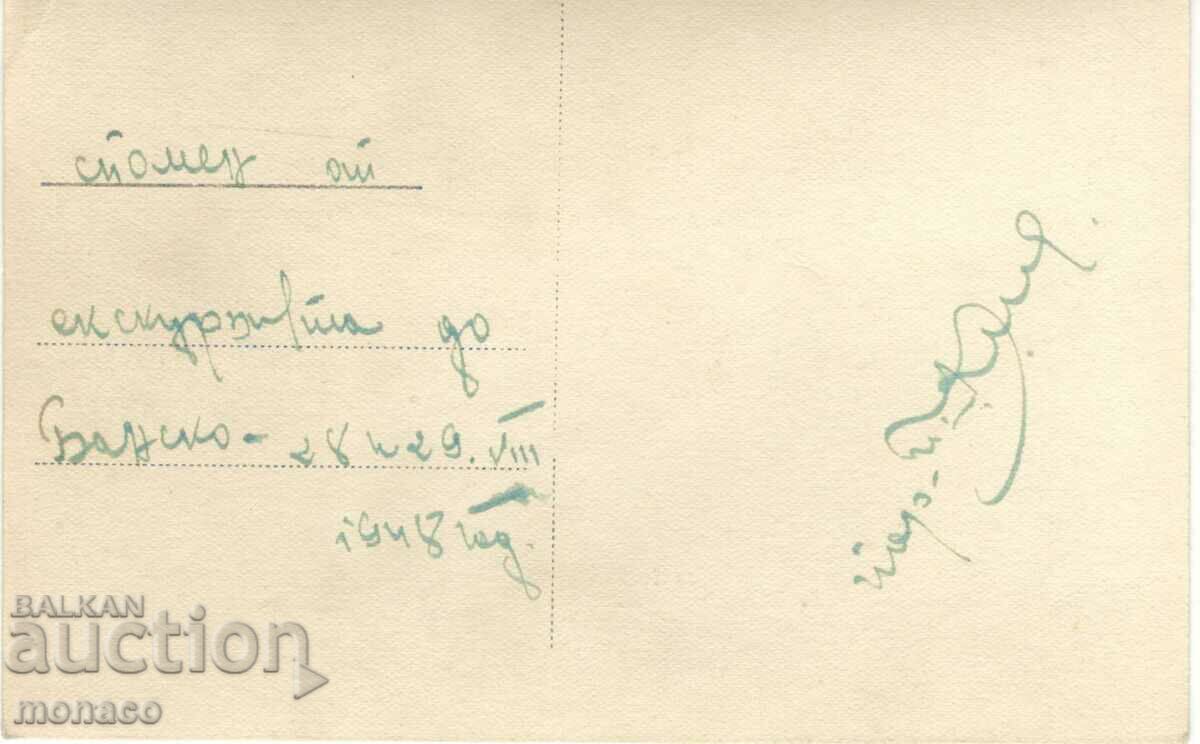 спомен от
екскурзията до
Банско - 28 и 29. VIII
1948 год.
BALKAN
auction
monaco